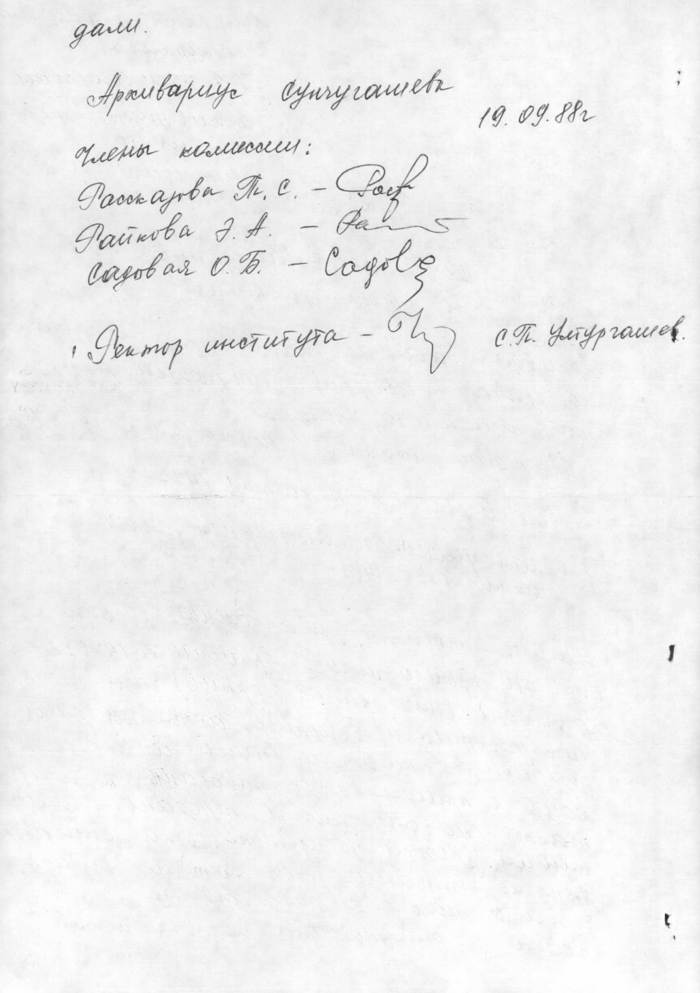 дали.
Архивариус Сунчугашева
19.09.88г
Члены комиссии:
Рассказова Т. С. –
Райкова Э. А. –
Садовая О. Б. – Садов
Ректор института – С.П. Ултургашев.